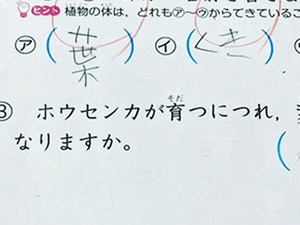 ヒント 植物の体は、どれも㋐〜㋒からできているこ
㋐(葉) ㋑(くき)
③ ホウセンカが育つにつれ,
そだ
なりますか。